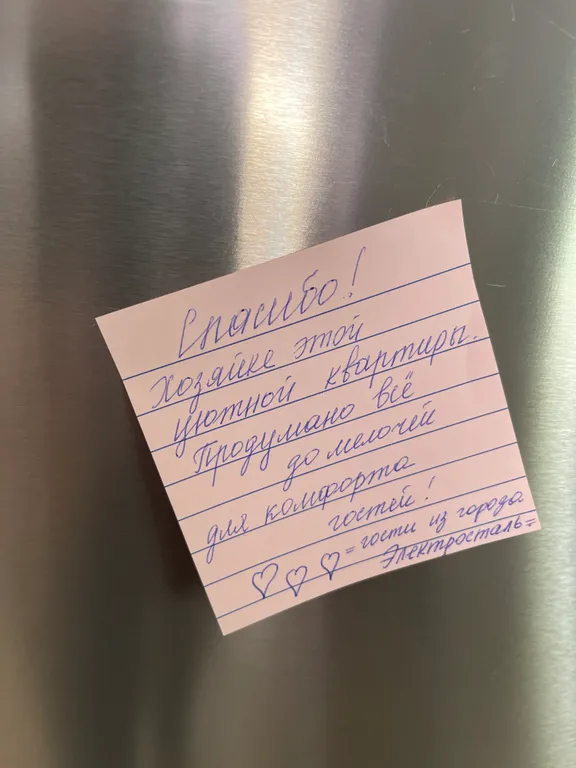 Спасибо!
Хозяйке этой
уютной квартиры.
Продумано всё
до мелочей
для комфорта
гостей!
♡ ♡ ♡ = гости из города
Электросталь =